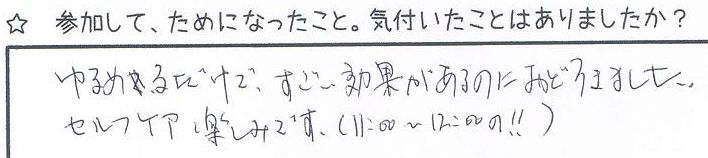 ☆ 参加して、ためになったこと。気付いたことはありましたか?
ゆるめるだけで、すごい効果があるのにおどろきました。
セルフケア楽しみです、(11:00~12:00の!!)